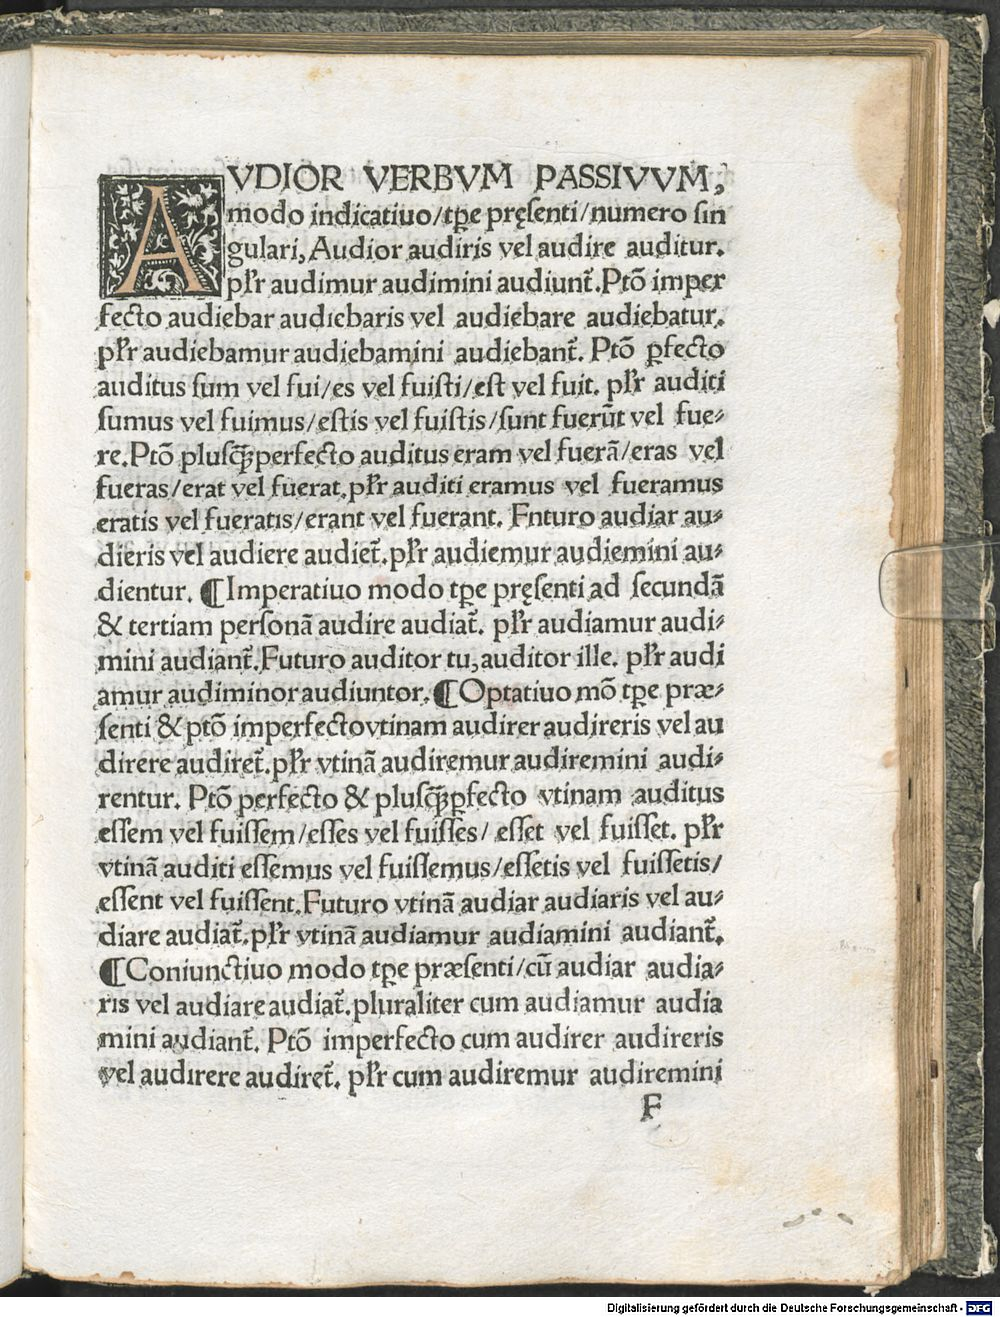 AVDIOR VERBVM PASSIVVM,
modo indicatiuo/tp̄e pręſenti/numero ſin
gulari, Audior audiris vel audire auditur.
pl̄r audimur audimini audiunt̄. Ptō imper
fecto audiebar audiebaris vel audiebare audiebatur.
pl̄r audiebamur audiebamini audiebant̄. Ptō ꝑfecto
auditus ſum vel fui/es vel fuiſti/eſt vel fuit. pl̄r auditi
ſumus vel fuimus/eſtis vel fuiſtis/ſunt fuerūt vel fue⸗
re. Ptō pluſq̄ꝫperfecto auditus eram vel fuerā/eras vel
fueras/erat vel fuerat. pl̄r auditi eramus vel fueramus
eratis vel fueratis/erant vel fuerant. Fnturo audiar au⸗
dieris vel audiere audiet̄. pl̄r audiemur audiemini au⸗
dientur. ¶Imperatiuo modo tp̄e pręſenti ad ſecundā
& tertiam perſonā audire audiat̄. pl̄r audiamur audi⸗
mini audiant̄. Futuro auditor tu, auditor ille. pl̄r audi
amur audiminor audiuntor. ¶Optatiuo mō tp̄e præ⸗
ſenti & ptō imperfecto vtinam audirer audireris vel au
direre audiret̄. pl̄r vtinā audiremur audiremini audi⸗
rentur. Ptō perfecto & pluſq̄ꝫꝑfecto vtinam auditus
eſſem vel fuiſſem/eſſes vel fuiſſes/ eſſet vel fuiſſet. pl̄r
vtinā auditi eſſemus vel fuiſſemus/eſſetis vel fuiſſetis/
eſſent vel fuiſſent. Futuro vtinā audiar audiaris vel au⸗
diare audiat̄. pl̄r vtinā audiamur audiamini audiant̄.
¶Coniunctiuo modo tp̄e præſenti/cū audiar audia⸗
ris vel audiare audiat̄. pluraliter cum audiamur audia
mini audiant̄. Ptō imperfecto cum audirer audireris
vel audirere audiret̄. pl̄r cum audiremur audiremini
F
Digitalisierung gefördert durch die Deutsche Forschungsgemeinschaft - DFG